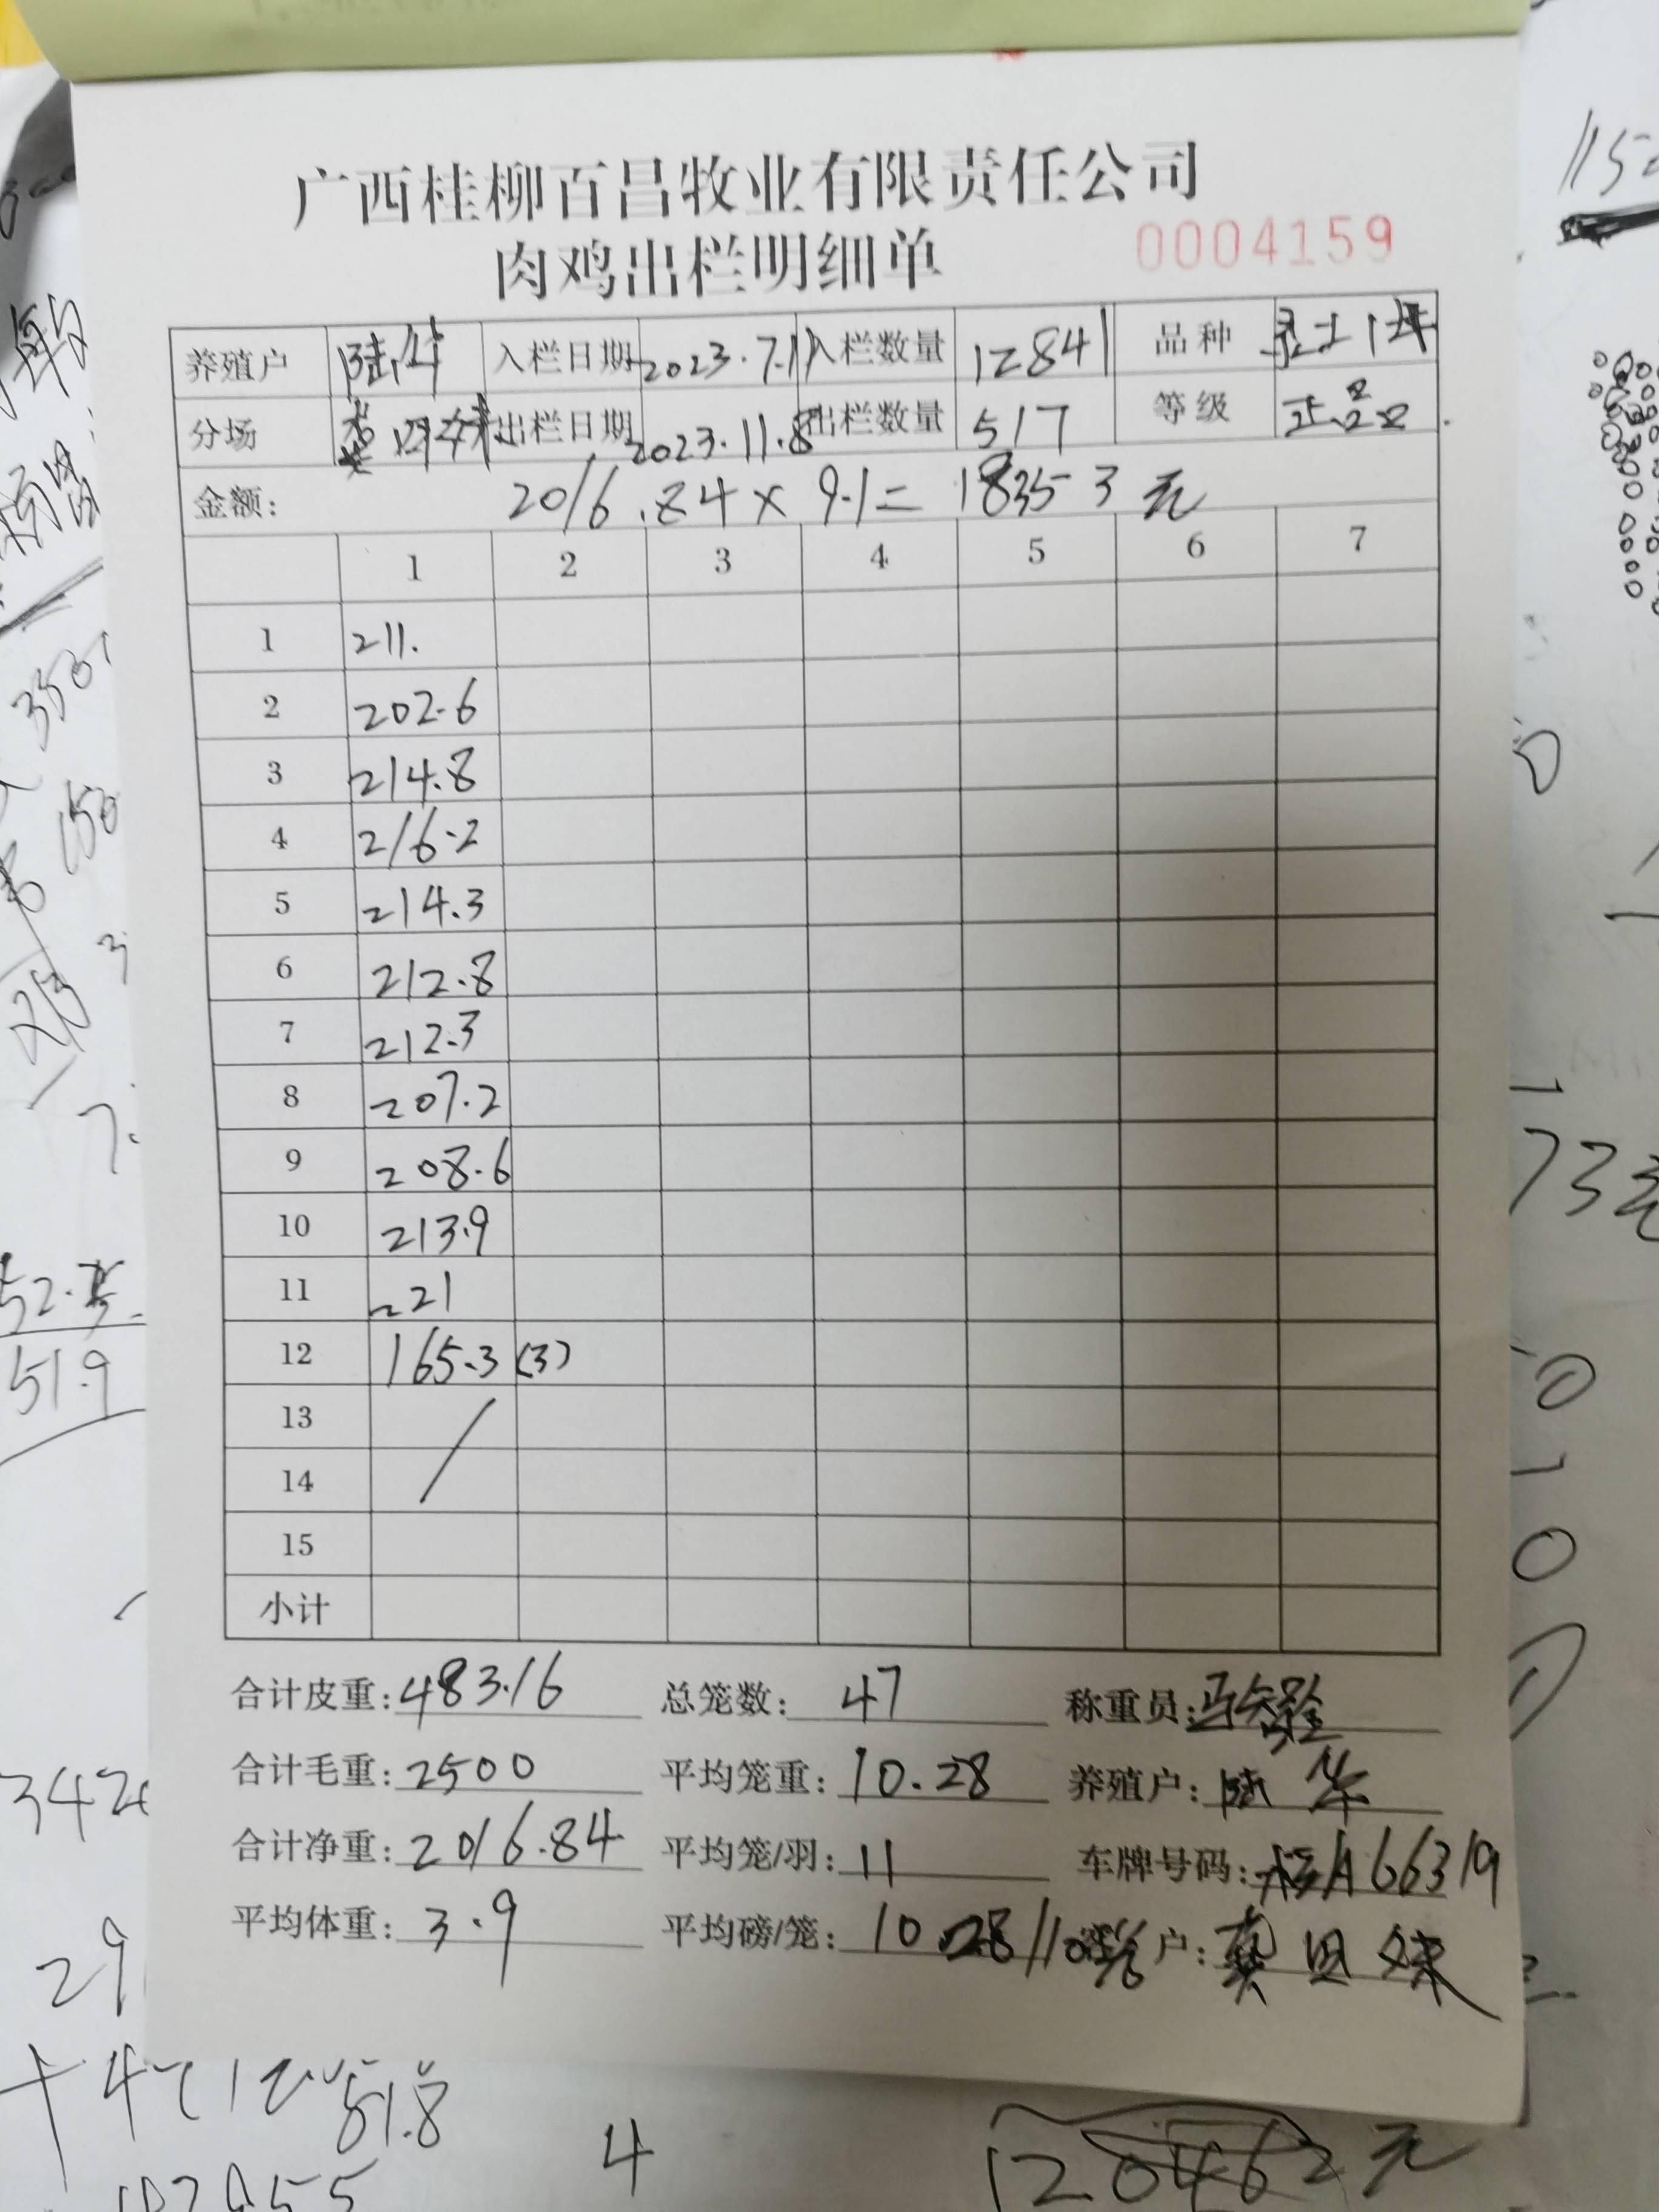 广西桂柳百昌牧业有限责任公司
肉鸡出栏明细单 0004159
养殖户 陆华 入栏日期 2023.7.11 入栏数量 12841 品种 土1
分场 出栏日期 2023.11.8 出栏数量 517 等级 正品
金额: 2016.84×9.1=18353元
1 2 3 4 5 6 7
1 211.
2 202.6
3 214.8
4 216.2
5 214.3
6 212.8
7 212.3
8 207.2
9 208.6
10 213.9
11 221
12 165.3 (3)
13
14
15
小计
合计皮重: 483.16 总笼数: 47 称重员:
合计毛重: 2500 平均笼重: 10.28 养殖户: 陆华
合计净重: 2016.84 平均笼/羽: 11 车牌号码: 桂A66319
平均体重: 3.9 平均磅/笼: 10.28 户:
3501
150
213
52.
51.9
73元
29
51.8
4